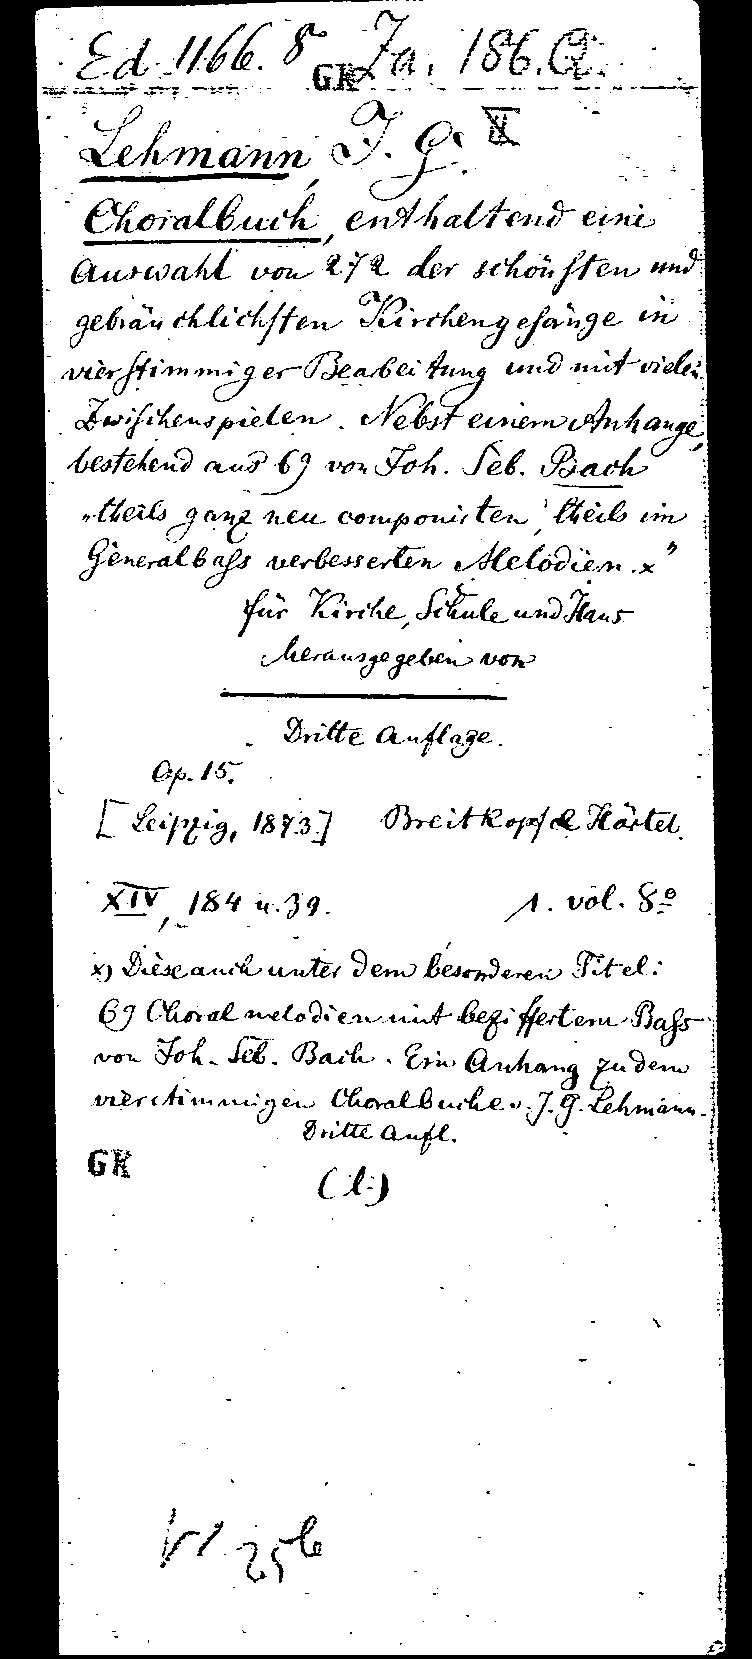 Ed. 1166. 8° GK Za. 186. Q.
Lehmann, J. G.
Choralbuch, enthaltend eine
Auswahl von 272 der schönsten und
gebräuchlichsten Kirchengesänge in
vierstimmiger Bearbeitung und mit vielen
Zwischenspielen. Nebst einem Anhange,
bestehend aus 69 von Joh. Seb. Bach
„theils ganz neu componirten, theils im
Generalbass verbesserten Melodien. x"
für Kirche, Schule und Haus
herausgegeben von
Dritte Auflage.
Op. 15.
[Leipzig, 1873.] Breitkopf & Härtel.
XIV, 184 u. 39. 1. vol. 8°
x) Diese auch unter dem besonderen Titel:
69 Choralmelodien mit beziffertem Bass
von Joh. Seb. Bach. Ein Anhang zu dem
vierstimmigen Choralbuche v. J. G. Lehmann.
Dritte Aufl.
GK
(l.)
VI 256